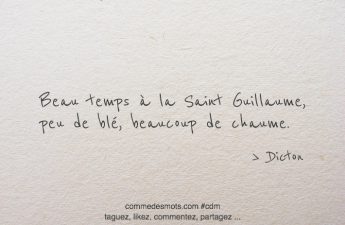 Beau temps à la Saint Guillaume,
peu de blé, beaucoup de chaume.
> Dicton
commedesmots.com #cdm
taguez, likez, commentez, partagez ...